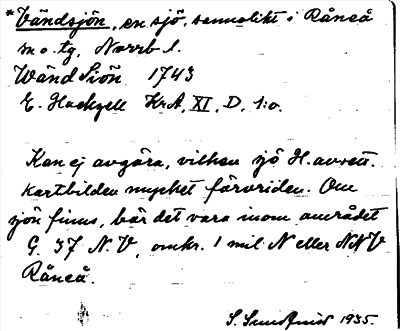 *Vändsjön, en sjö, sannolikt i Råneå
sn o. tg, Norrb l.
Wänd Siöñ 1743
E. Hackzell KrA, XI, D, 1:a.
Kan ej avgöra, vilken sjö H. avsett.
Kartbilden mycket förvriden. Om
sjön finns, bör det vara inom området
G 37 N. V, omkr. 1 mil N eller NNV
Råneå.
S. Sundqvist 1935.